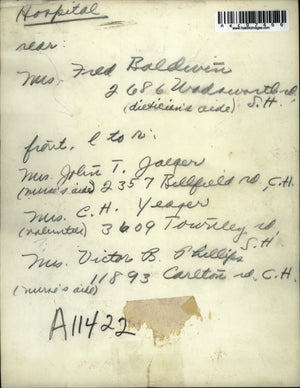 Hospital
rear:
Mrs. Fred Baldwin
2686 Wadsworth rd,
(dietician's aide) S.H.
front, l to r:
Mrs. John T. Jaeger
(nurse's aide) 2357 Bellfield rd, C.H.
Mrs. C. H. Yeager
3609 Townley rd,
S.H
Mrs. Victor B. Phillips
11893 Carlton rd, C.H.
(nurse's aide)
A11422